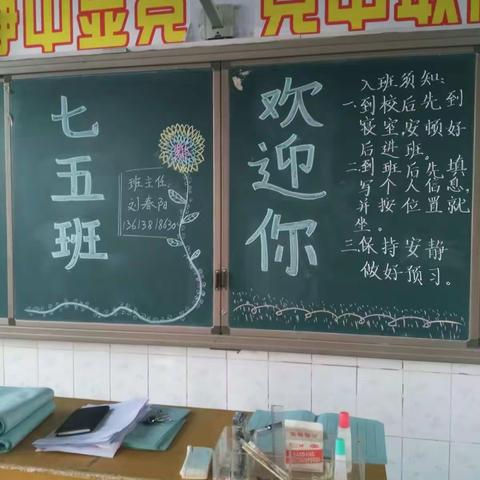 静中显竞 竞中取
七五班
班主任
刘春阳
13613818630
欢迎你
入班须知:
一.到校后先到
寝室,安顿好
后进班。
二.到班后先填
写个人信息,
并按位置就
坐。
三.保持安静
做好预习。